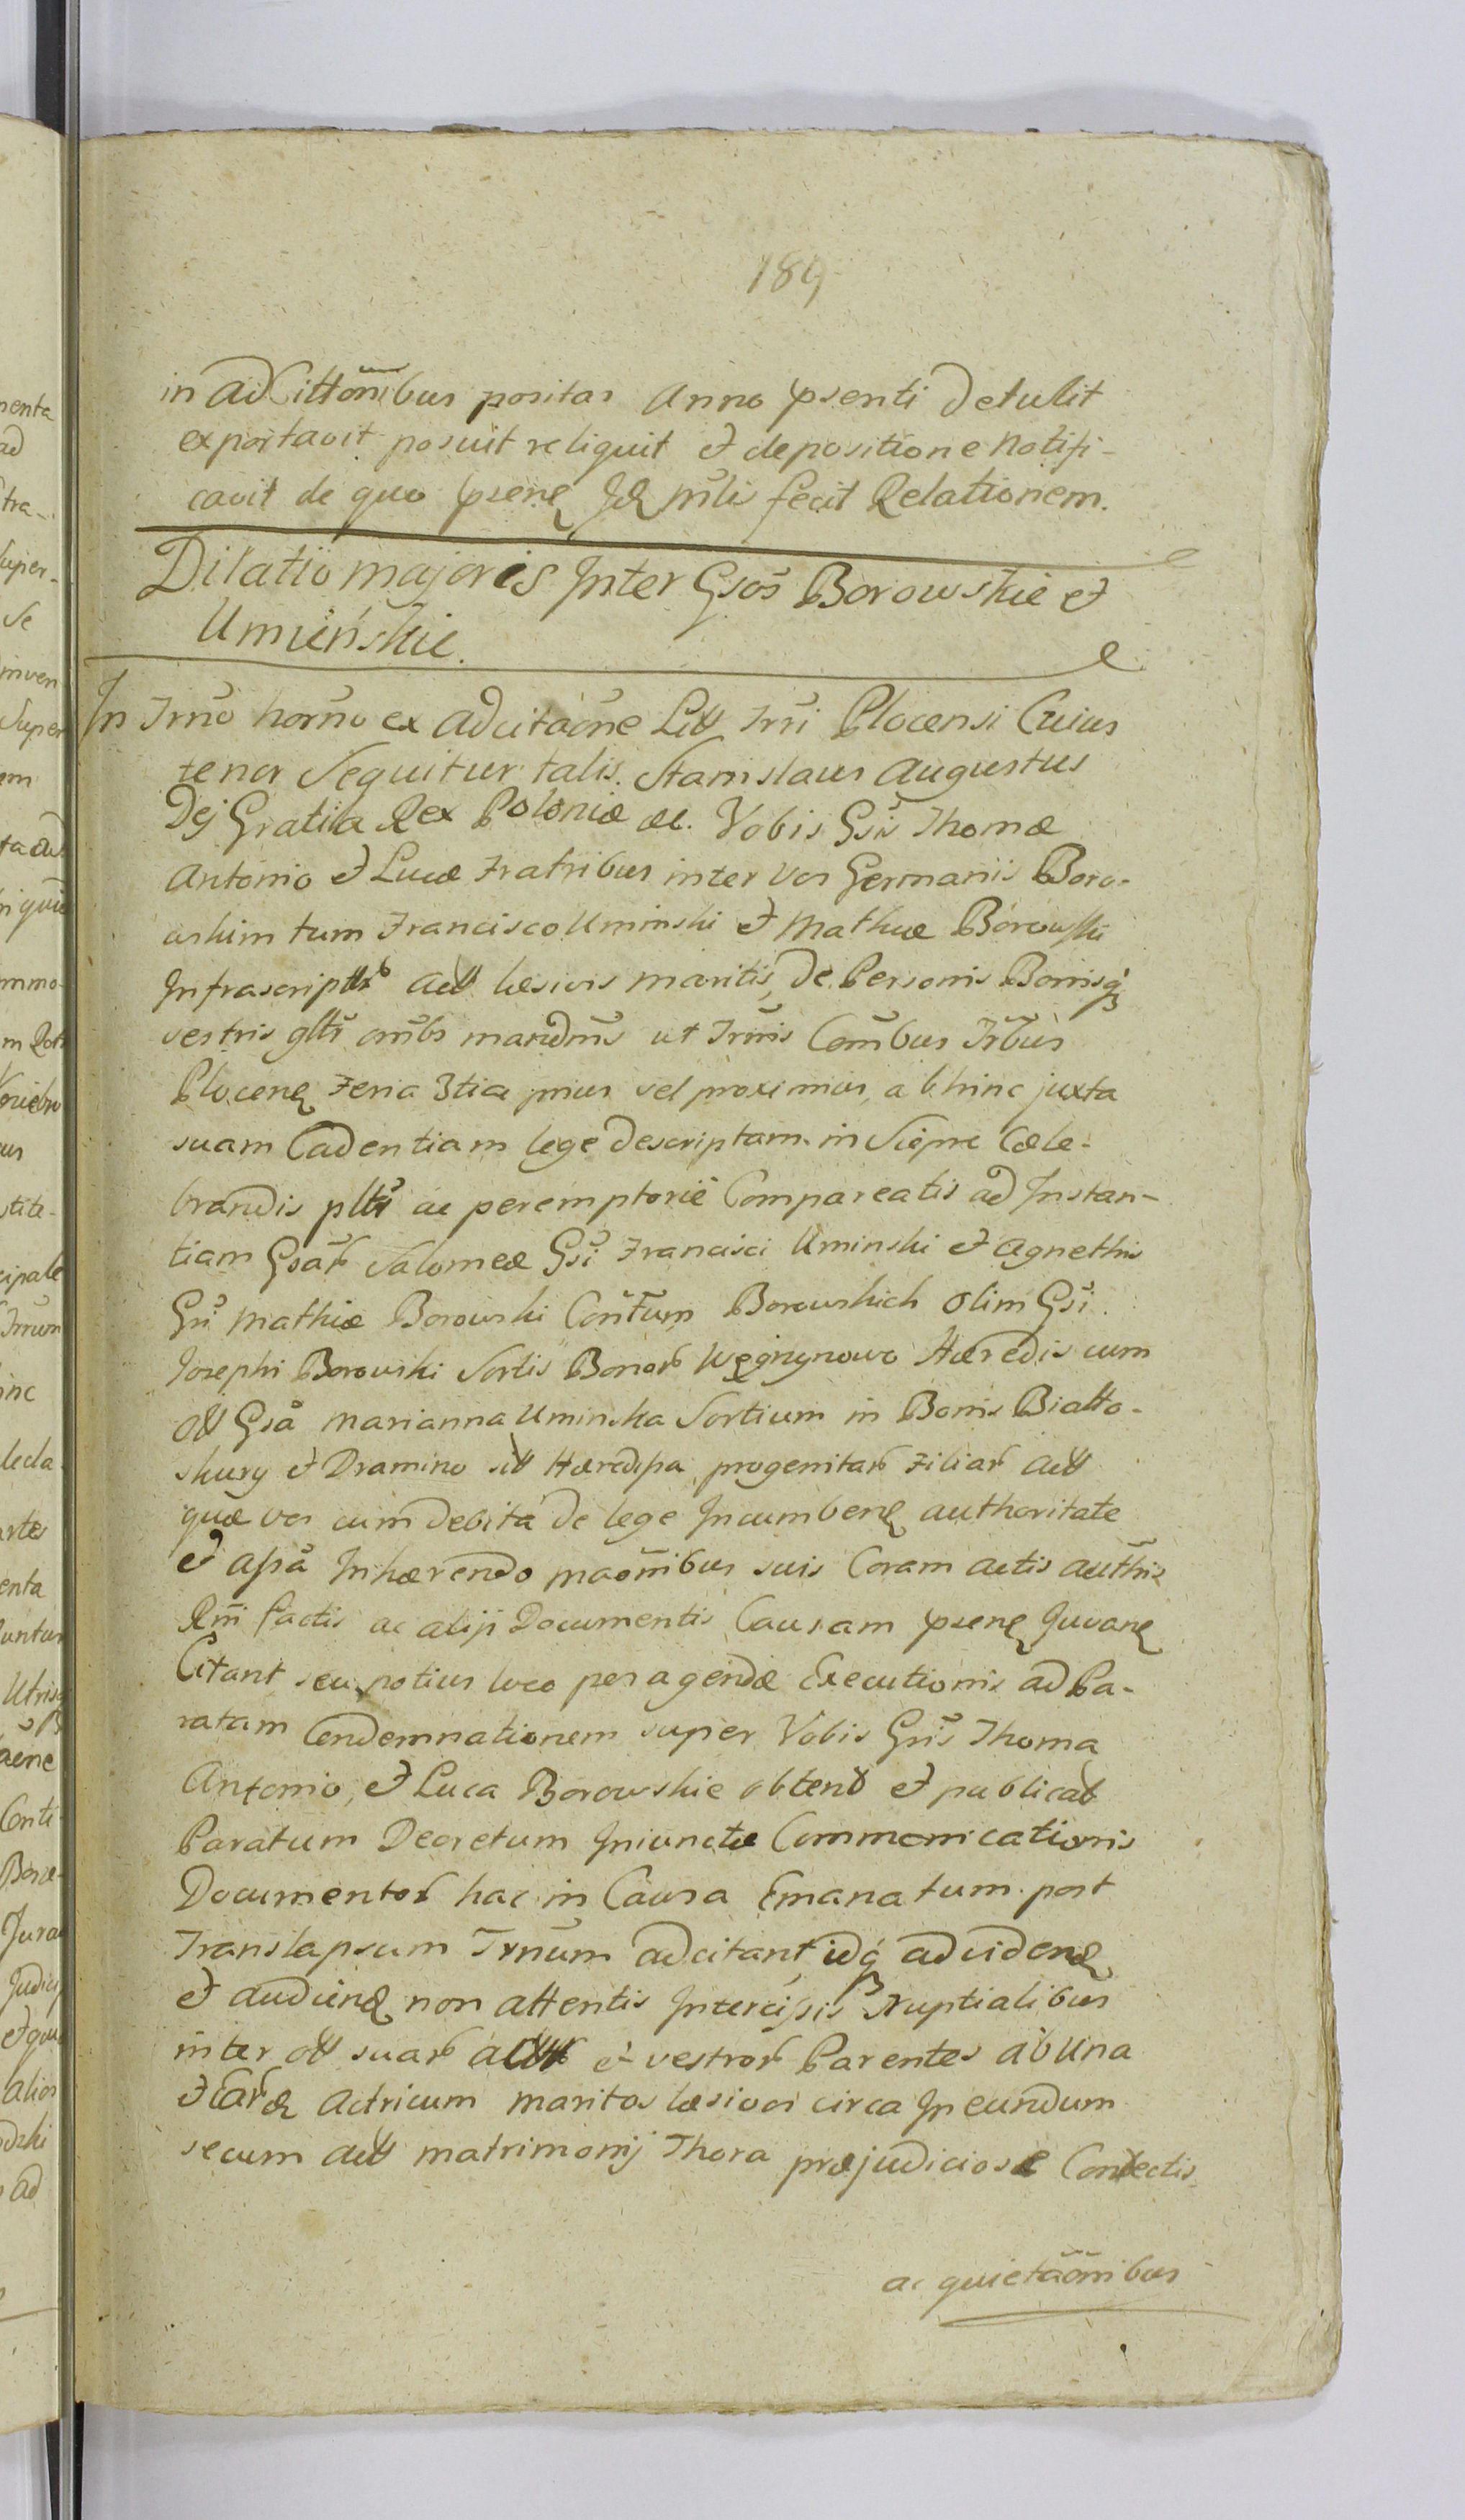 189
in adCittõnibus positas Anno pſenti detulit
exportavit posuit reliquit et depositione notifi-
cavit de quo psene Id mli fecit Relationem.
Dilatio majoris Inter Gsos Borowskie et
Umieńskie.
In Trno horno ex adcitaõne Trri Plocensi Cuius
tenor Sequitur talis. Stanislaus Augustus
Dej Gratia Rex Poloniæ &c. Vobis Gsis Thomæ
Antonio et Lucæ Fratribus inter vos Germanis Boro-
wskim tum Francisco Uminski et Mathiæ Borowski
Infrascript act læsivis maritis, de Personis Bonisq
vestris glr ombs mandms ut Trmis Combus Trbus
Plocene Feria 3tia prius vel proximius, abhinc juxta
suam Cadentiam lege descriptam in Sierpc Cæle-
brandis pltr ac peremptorie Compareatis ad Instan-
tiam Gsar Salomeæ Gsi Francisci Uminski et Agnethis
Gsi Mathiæ Borowski Contum Borowskich olim Gsi
Josephi Borowski Sortis Bonor Węgrzynowo Hæredis cum
Gsa Marianna Uminska Sortium in Bonis Białto-
skury et Dramino Hæredipa progenitar Filiar act
quæ vos cum debita de lege Incumbene authoritate
et assa Inhærendo maõnibus suis Coram actis authis
Rni factis ac alijs Documentis Causam psene Juvane
Citant seu potius loco peragendæ Executionis ad Pa-
ratam Condemnationem super Vobis Gsis Thoma
Antonio, et Luca Borowskie obtend et publicat
Paratum Decretum Iniunctæ Commonicationis
Documentor hac in Causa Emanatum post
Translapsum Trnum adcitant idq advidend
et audiend non attentis Intercissis Nuptialibus
inter suar et vestror Parentes ab Una
et Actricum maritos læsivos circa Ineundum
secum act matrimonij Thora præjudiciose Confectis
ac quietaõnibus